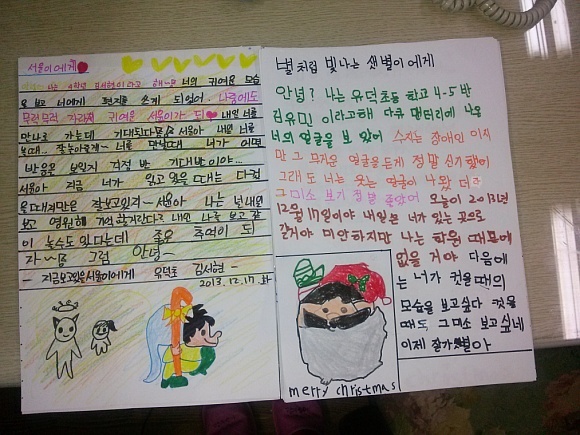 서울이에게
나는 4학년 김서현이라고 해~ 너의 귀여운 모습
을 보고 너에게 편지를 쓰게 되었어. 나중에도
무럭무럭 자라서 귀여운 서울이가 되 내일 너를
만나러 가는데 기대된다 서울아 내일 너를
볼때.. 잘놀아줄게~ 너를 만날때 너가 어떤
반응을 보일지 걱정 반 기대반이야...
서울아 지금 너가 읽고 있을 때는 다컸
을때겠지만은 잘보고있지~ 서울아 나는 널 내일
보고 영원히 기억할거란다? 내일 나를 보고 같
이 놀수도 있다는데 좋은 추억이 되
자~ 그럼 안녕~
- 지금보고있을서울이에게 유덕초 김서현 -
2013.12.17.화
별처럼 빛나는 샛별이에게
안녕? 나는 유덕초등학교 4-5반
김유민 이라고해 다큐 멘터리에 나온
너의 얼굴을 보았어 수자는 장애인 이시
만 그 무거운 얼굴을 든게 정말 신기했어
그래도 너는 웃는 얼굴이 나왔더라
그 미소 보기 정말 좋았어 오늘이 2013년
12월 17일이야 내일은 너가 있는 곳으로
갈거야 미안하지만 나는 학원 때문에
없을 거야 다음에
는 너가 컷을때의
모습을 보고싶다 컷을
때도 그 미소 보고싶네
이제 잘가 샛별아
merry christmas